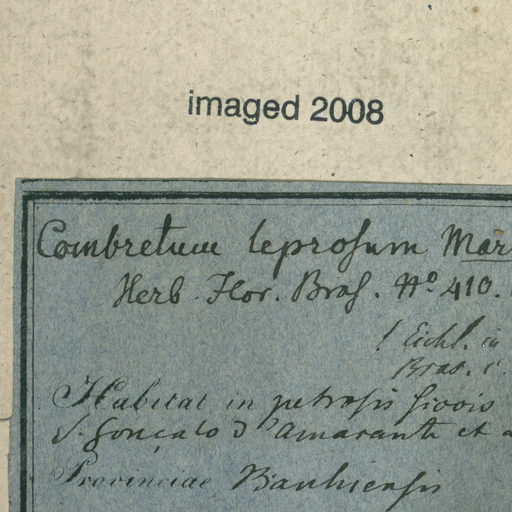 imaged 2008
Combretum leprosum Mar
Herb. Flor. Bras. No 410.
! Eichl. in
Bras. 
Habitat in petrosis siccis
S. Gonçalo d'Amarante et
Provinciae Bauhiensis